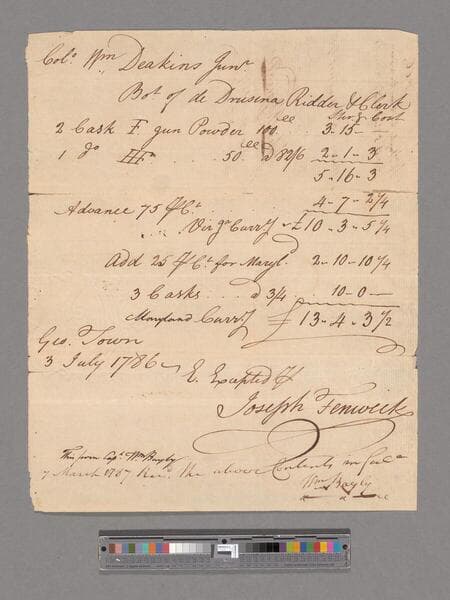 Col.º Wm Deakins Junr
Bot of de Drusina Ridder & Clerk
Ster.g Cost
2 Cask F gun Powder 100 lee 3.15 —
1 do FF . . . 50 lee a 82/6 2 - 1 - 3
5 - 16 - 3
Advance 75 ⅌ Ct. 4 - 7 - 2¼
Virga Curry £10 - 3 - 5¼
Add 25 ⅌ Ct for Maryld 2 - 10 - 10¼
3 Casks . . a 3/4 10 - 0 —
Maryland Curry £ 13 - 4 - 3½
Geo. Town
3 July 1786
E. Excepted ⅌
Joseph Fenwick
Capt. Wm Bayly
7 March 1787 the above Contents in full
Wm Bayly